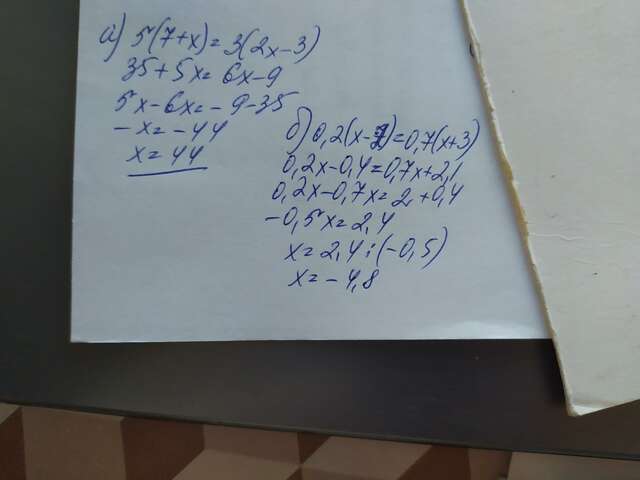 а) 5(7+x)=3(2x-3)
35+5x=6x-9
5x-6x=-9-35
-x=-44
x=44
б) 0,2(x-2)=0,7(x+3)
0,2x-0,4=0,7x+2,1
0,2x-0,7x=2,+0,4
-0,5x=2,4
x=2,4:(-0,5)
x=-4,8